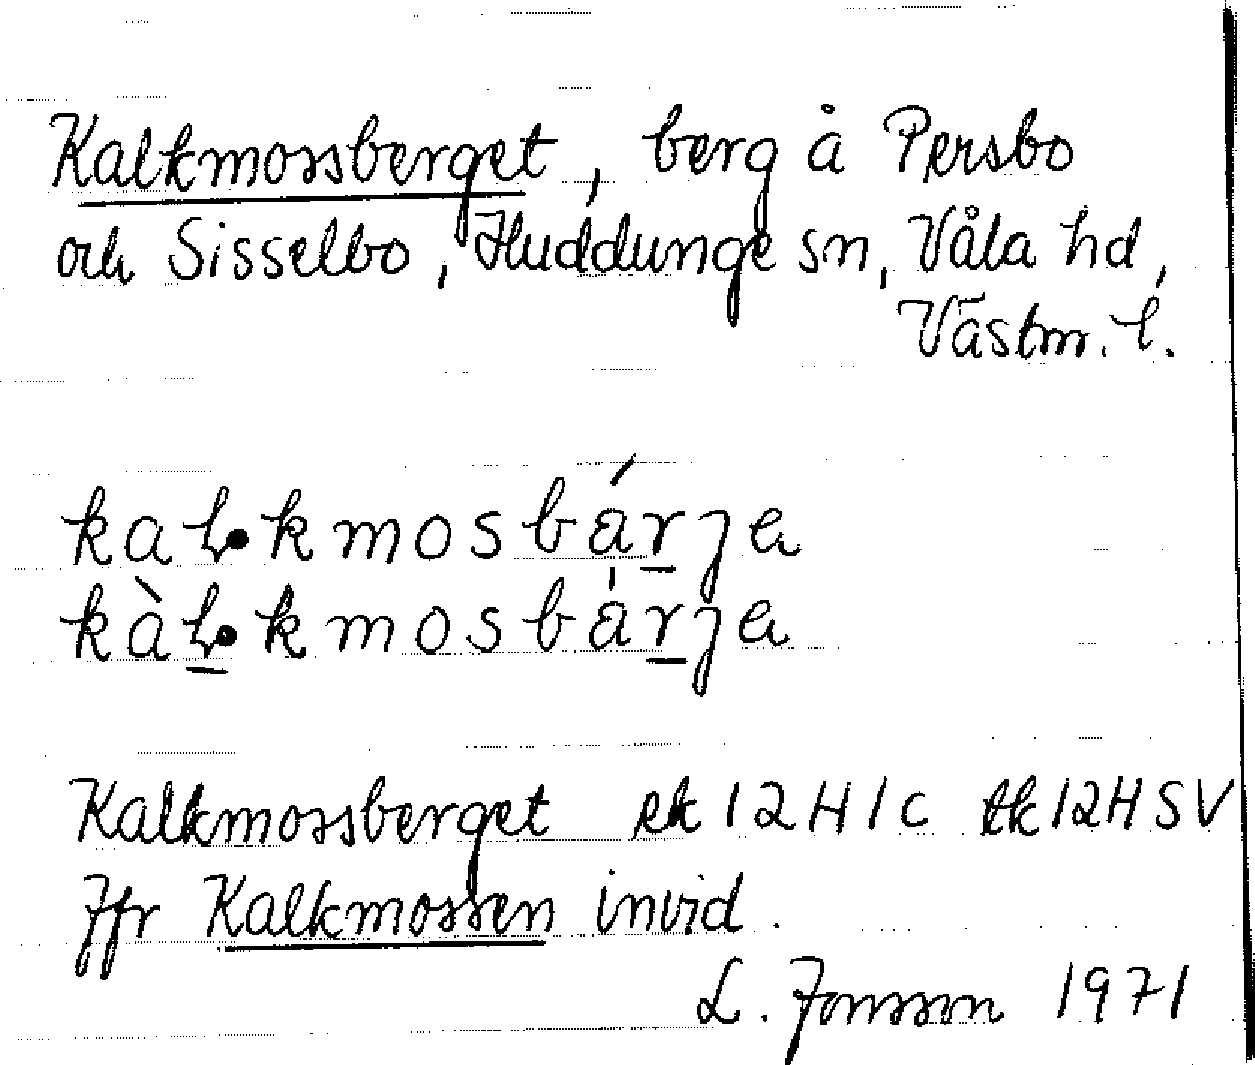 Kalkmossberget, berg å Persbo
och Sisselbo, Huddunge sn, Våla hd,
Västm. l.
Kalkmossberget ek 12H1c tk 12HSV
Jfr Kalkmossen invid.
L. Jonsson 1971